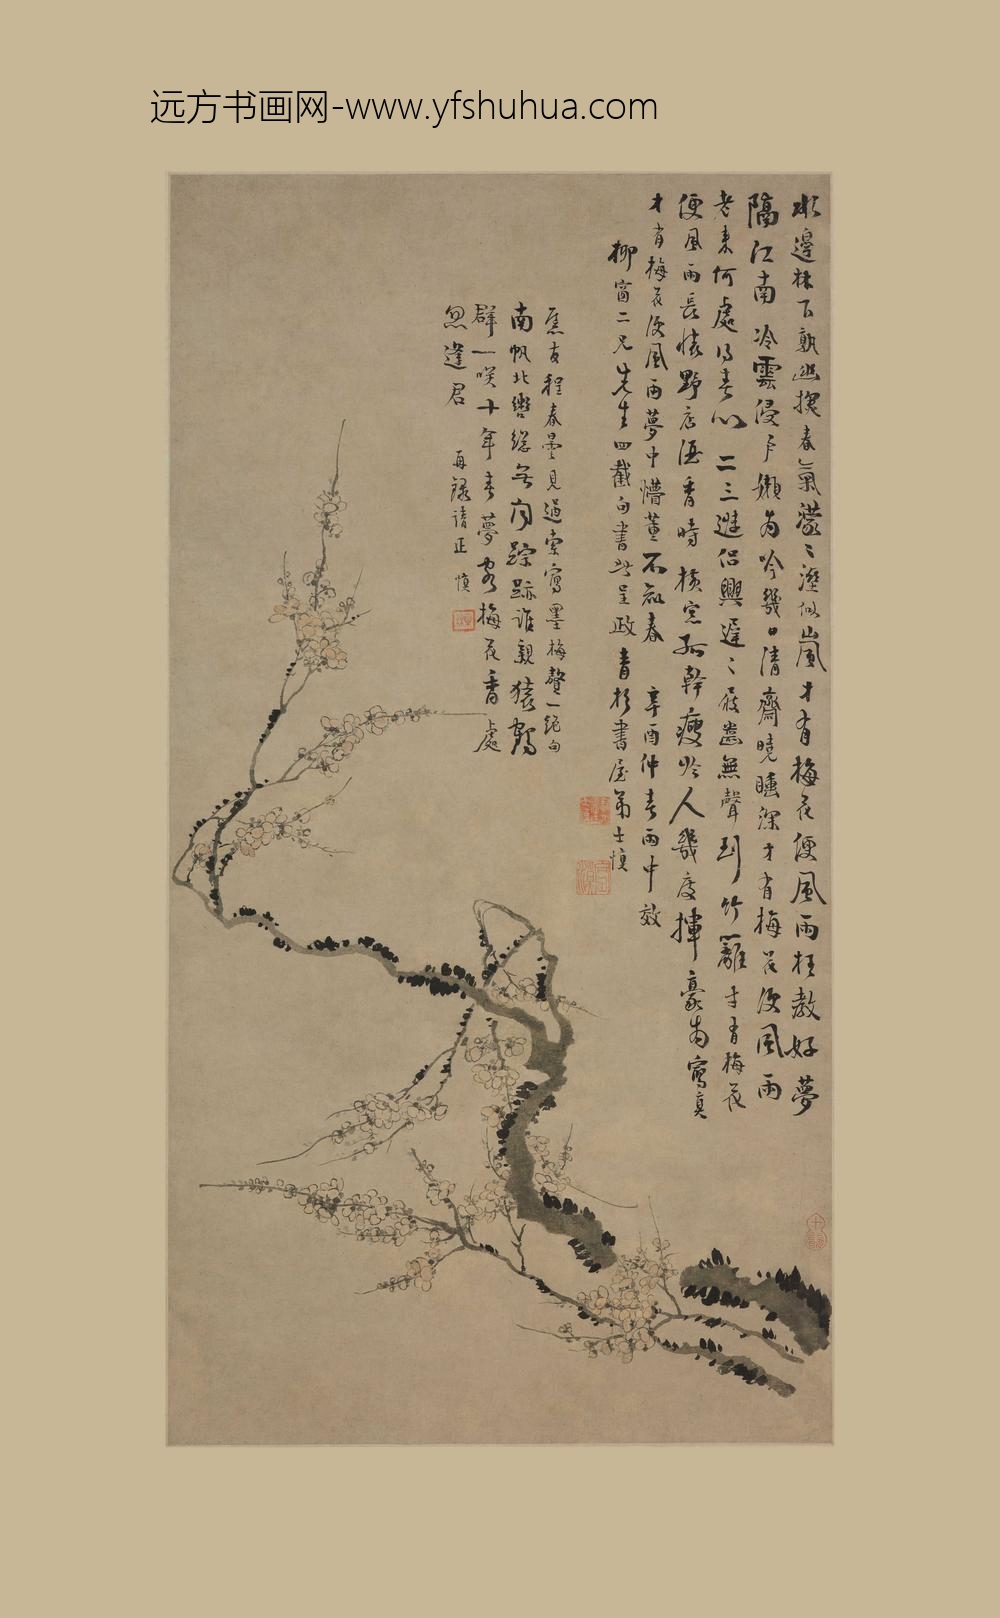 远方书画网-www.yfshuhua.com
水邊林下孰幽探春氣濛〻溼似嵐才有梅花便風雨枉教好夢
隔江南 冷雲侵戶嬾為吟幾日清齋曉睡深才有梅花便風雨
老來何處得春心 二三遊侶興遲〻屐齒無聲到竹籬才有梅花
便風雨長懷野店酒香時 橫窓孤幹瘦于人幾度揮豪為寫真
才有梅花便風雨夢中懵董不知春 辛酉仲春雨中效
柳窗二兄先生四截句書此呈政 青杉書屋弟士慎
舊友程春曇見過索寫墨梅贅一絕句
南帆北轡總無聞踪跡誰親猿鶴
群一咲十年春夢客梅花香處
忽逢君 再錄請正 慎